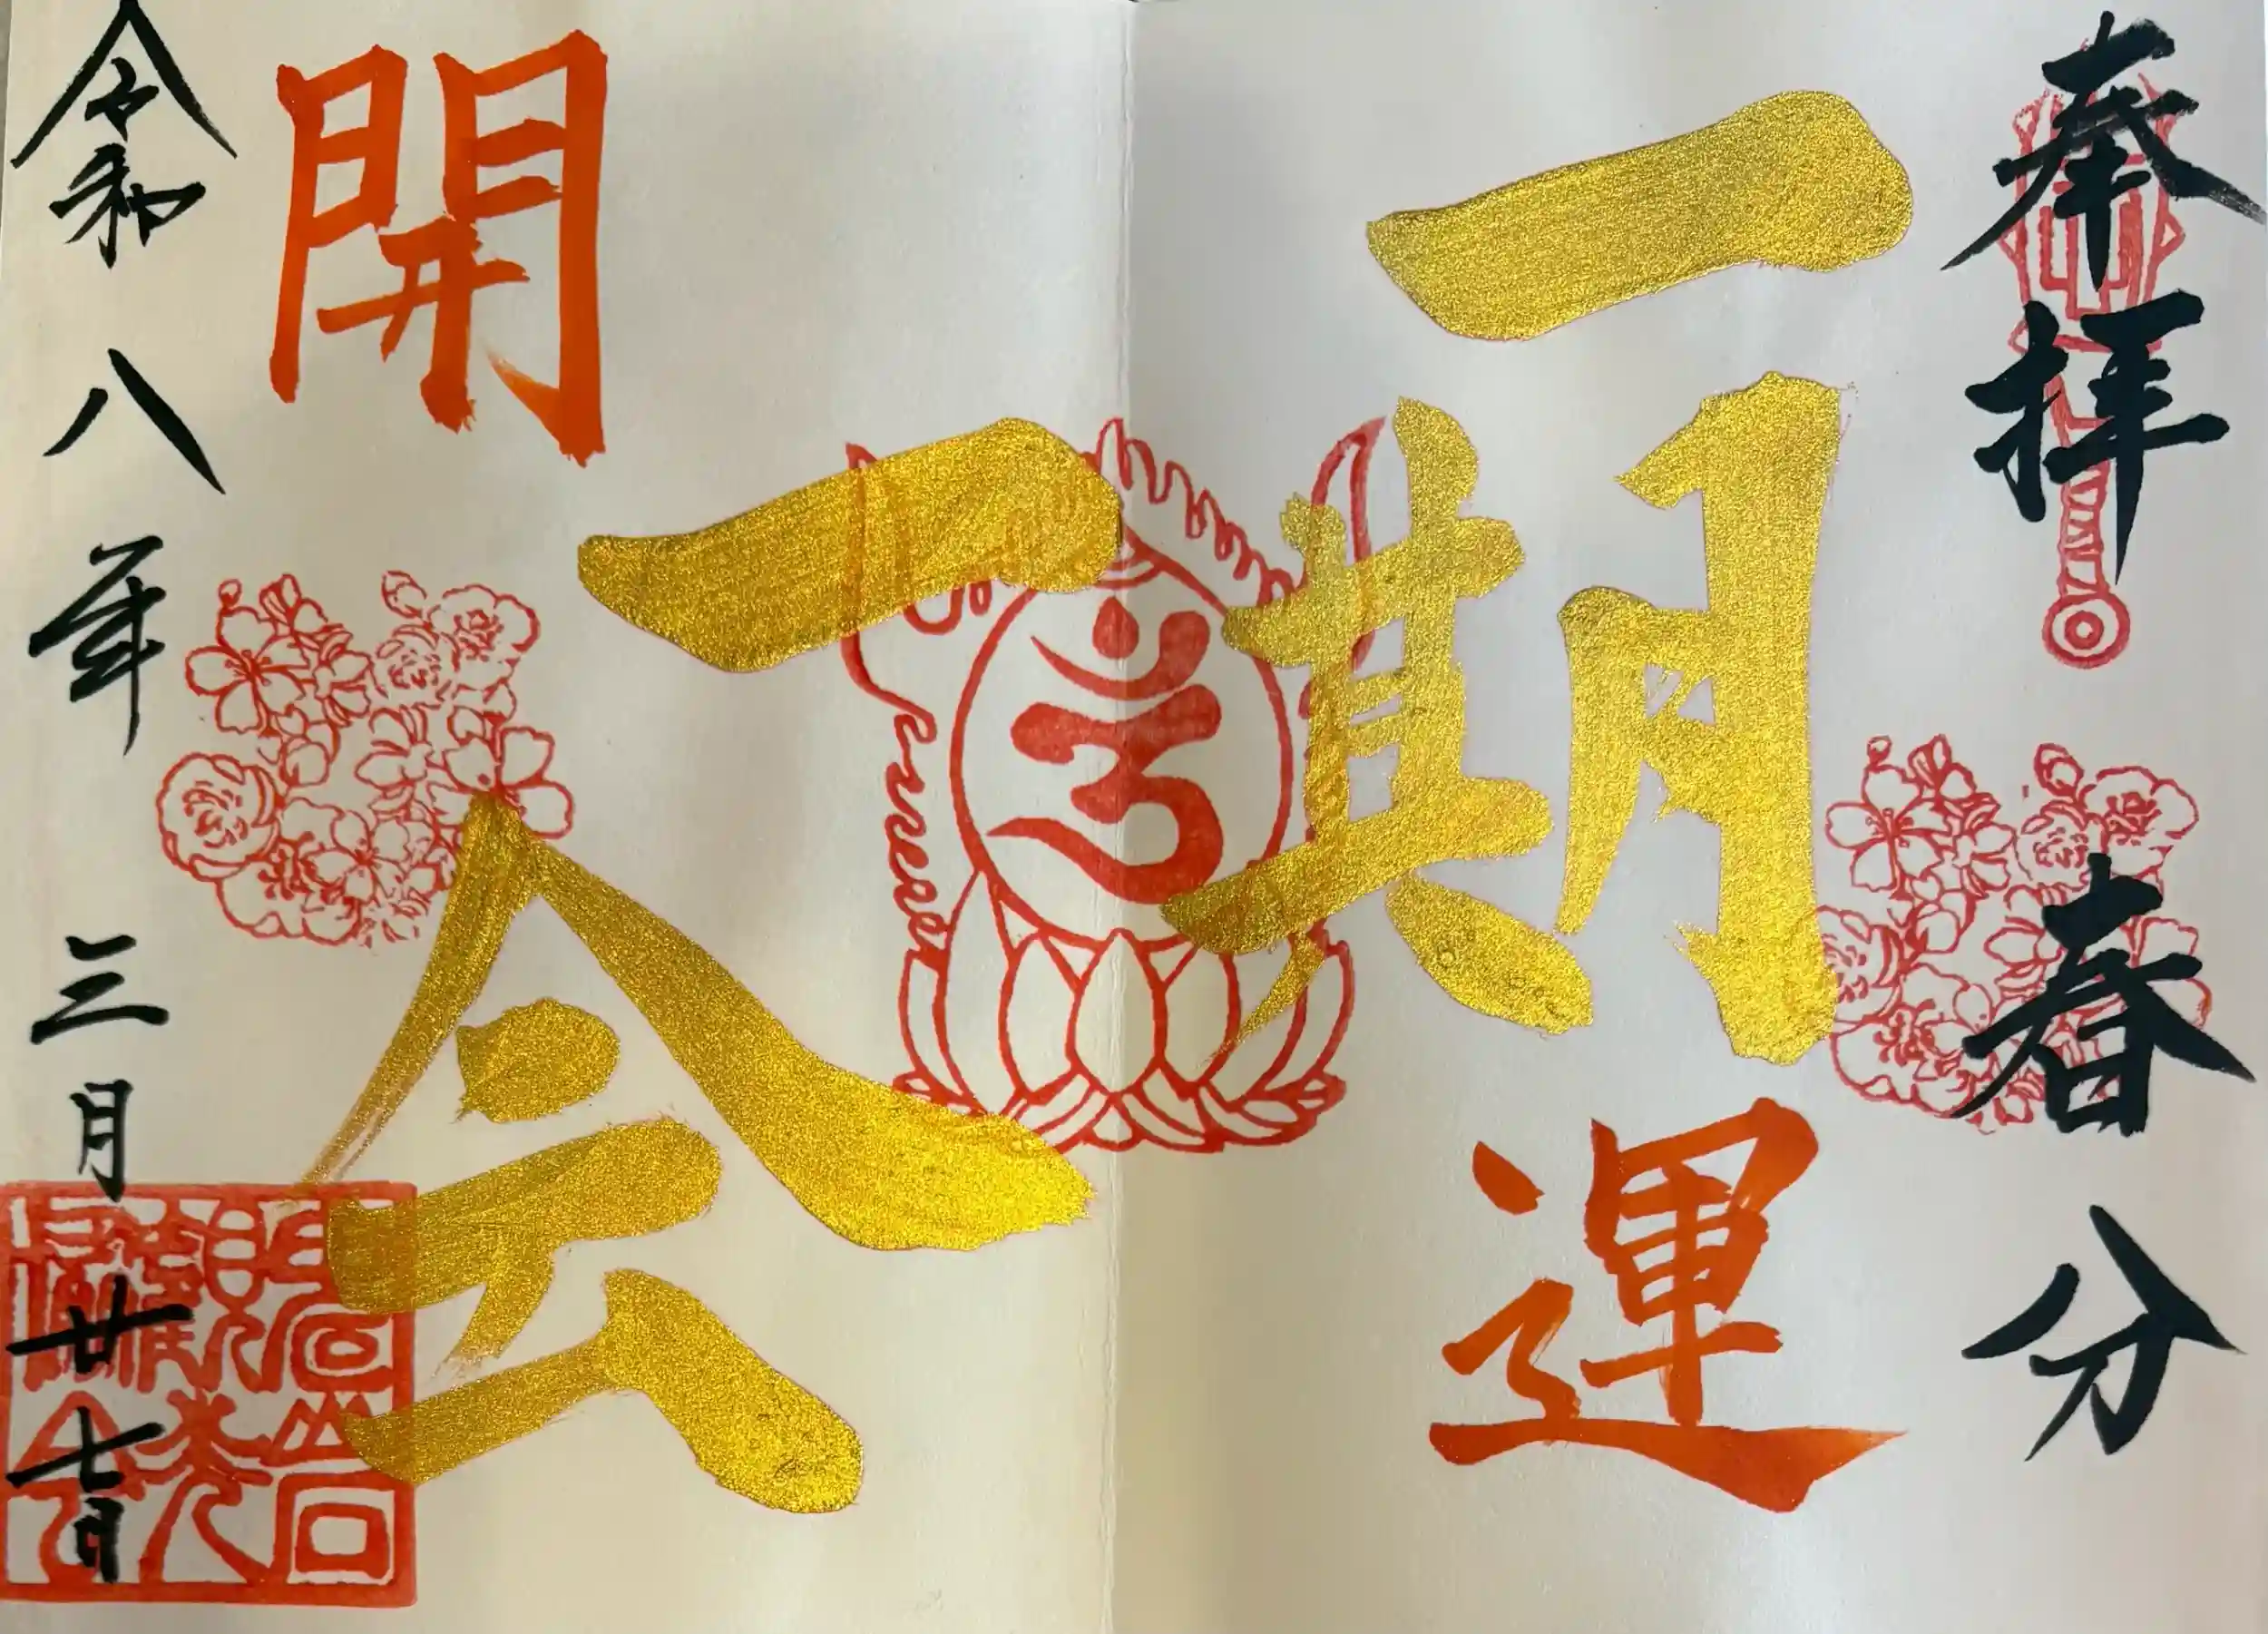 奉拝 春分
一期
一会
開運
令和八年三月廿七日